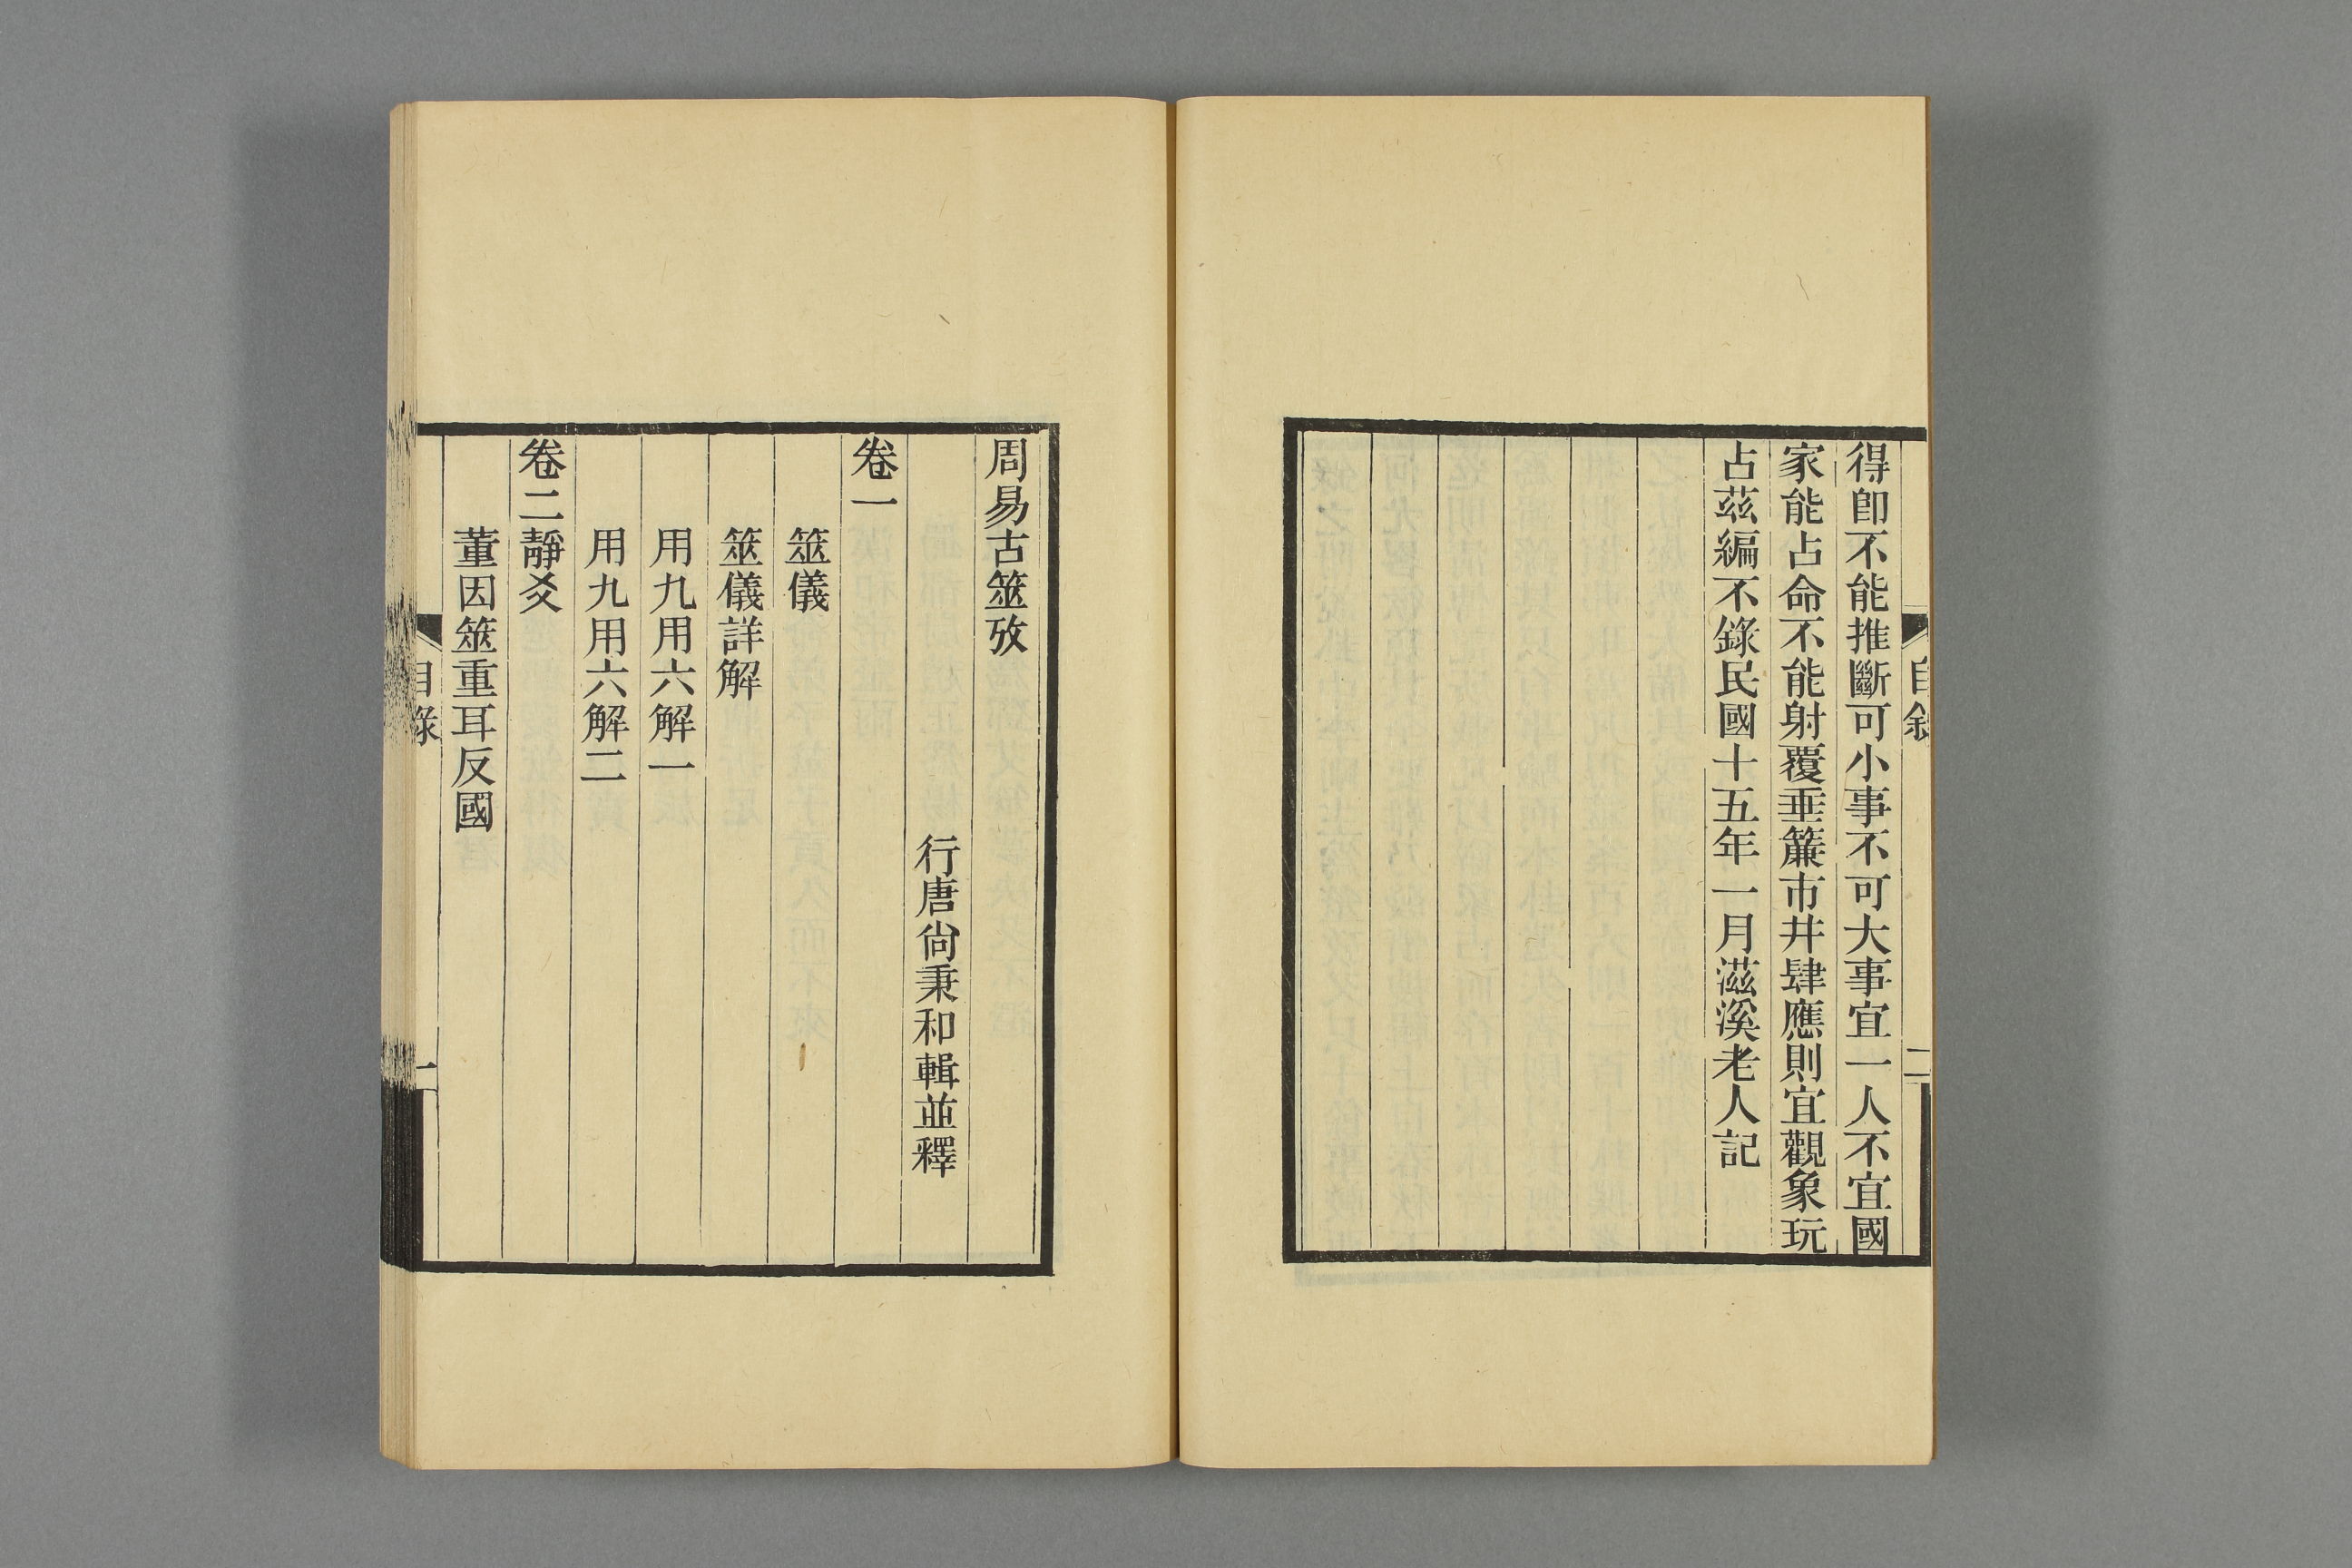 得卽不能推斷可小事不可大事宜一人不宜國
家能占命不能射覆垂簾市井肆應則宜觀象玩
占茲編不錄民國十五年一月滋溪老人記
二
周易古筮攷
行唐尙秉和輯並釋
卷一
筮儀
筮儀詳解
用九用六解一
用九用六解二
卷二靜爻
董因筮重耳反國
目錄
一